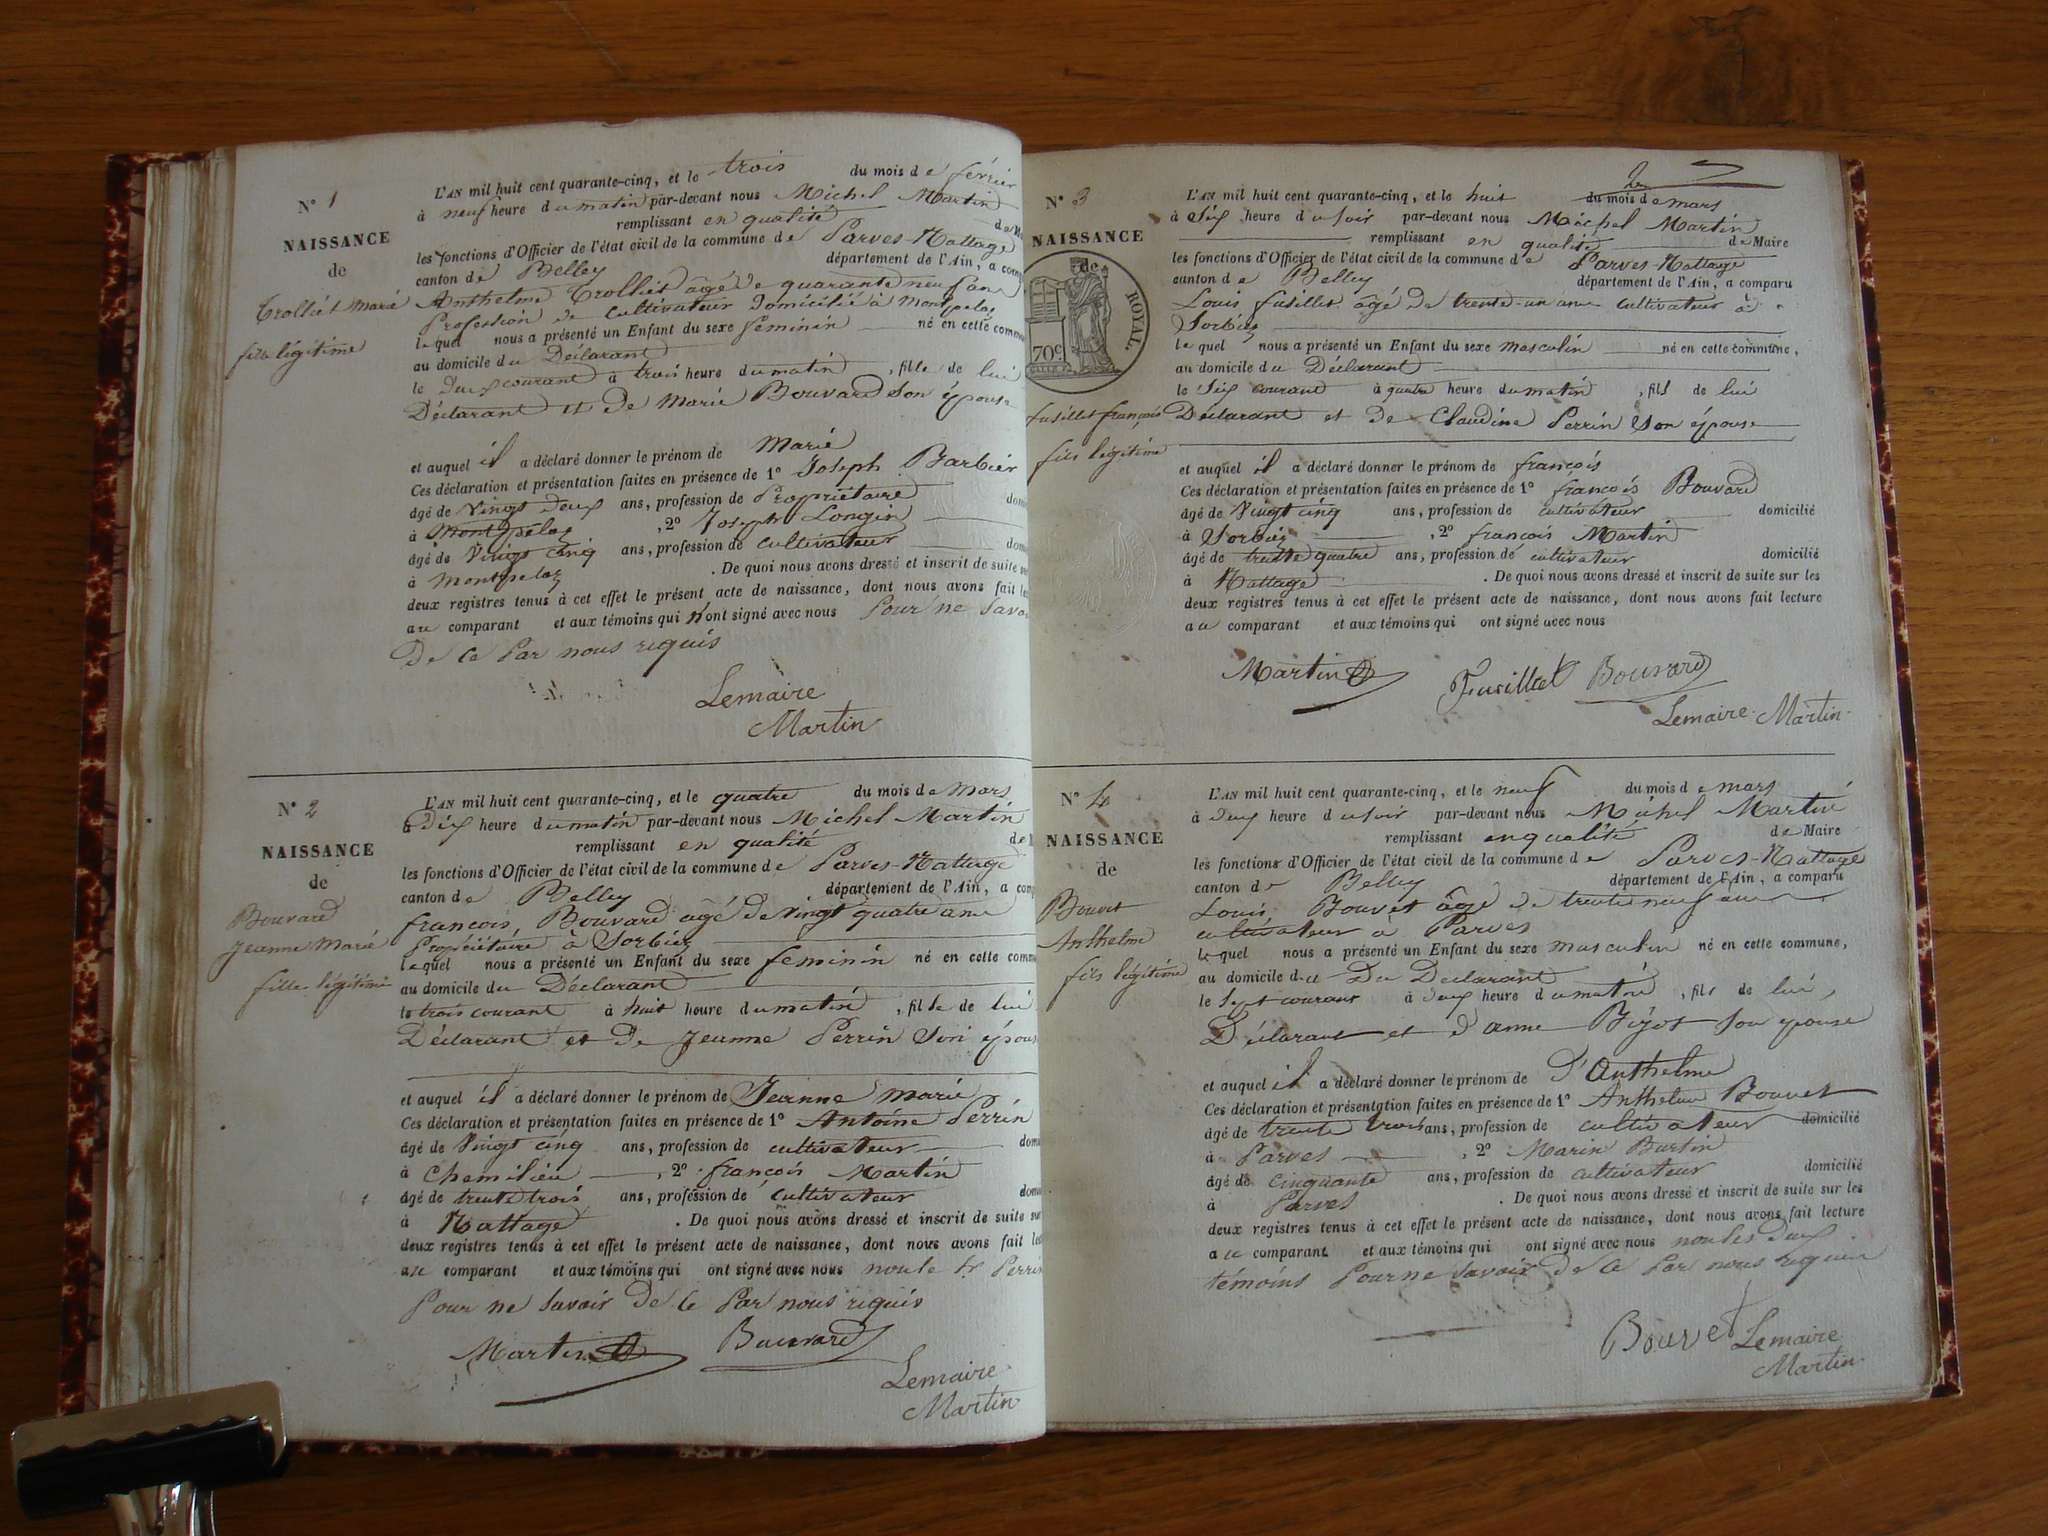 N° 1
NAISSANCE
de
Trolliet Marie
fille légitime
L'AN mil huit cent quarante-cinq, et le trois du mois de février
à neuf heure du matin par-devant nous Michel Martin
remplissant en qualité de
les fonctions d'Officier de l'état civil de la commune de Parves-Nattage
canton de Belley département de l'Ain, a
Anthelme Trolliet âgé de quarante neuf ans
Profession de cultivateur domicilié à Montpelaz
lequel nous a présenté un Enfant du sexe féminin né en cette
au domicile du Déclarant
le deux courant à trois heure du matin, fille de lui
Déclarant et de Marie Bouvard son épouse
et auquel il a déclaré donner le prénom de Marie
Ces déclaration et présentation faites en présence de 1° Joseph Barbier
âgé de vingt deux ans, profession de Propriétaire
à Montpelaz, 2° Joseph Longin
âgé de vingt cinq ans, profession de cultivateur
à Montpelaz. De quoi nous avons dressé et inscrit de suite
deux registres tenus à cet effet le présent acte de naissance, dont nous avons fait
au comparant et aux témoins qui n'ont signé avec nous Pour ne
De ce Par nous requis
Lemaire
Martin
N° 2
NAISSANCE
de
Bouvard
Jeanne Marie
fille légitime
L'AN mil huit cent quarante-cinq, et le quatre du mois de mars
à Dix heure du matin par-devant nous Michel Martin
remplissant en qualité de
les fonctions d'Officier de l'état civil de la commune de Parves-Nattage
canton de Belley département de l'Ain, a
francois Bouvard âgé de vingt quatre ans
Propriétaire à Sorbiez
lequel nous a présenté un Enfant du sexe feminin né en cette
au domicile du Déclarant
le trois courant à huit heure du matin, fille de lui
Déclarant et de Jeanne Perrin Son
et auquel il a déclaré donner le prénom de Jeanne Marie
Ces déclaration et présentation faites en présence de 1° Antoine Perrin
âgé de vingt cinq ans, profession de cultivateur
à Chemilieu, 2° francois Martin
âgé de trente trois ans, profession de cultivateur
à Nattage. De quoi nous avons dressé et inscrit de suite
deux registres tenus à cet effet le présent acte de naissance, dont nous avons fait
au comparant et aux témoins qui ont signé avec nous
Pour ne Savoir De ce Par nous requis
Martin Bouvard
Lemaire
Martin
2
N° 3
NAISSANCE
de
ROYAL.
70c.
fusillet françois
fils légitime
L'AN mil huit cent quarante-cinq, et le huit du mois de mars
à Six heure du soir par-devant nous Michel Martin
remplissant en qualité de Maire
les fonctions d'Officier de l'état civil de la commune de Parves-Nattage
canton de Belley département de l'Ain, a comparu
Louis fusillet âgé de trente un ans cultivateur à
Sorbiez
lequel nous a présenté un Enfant du sexe masculin né en cette commune,
au domicile du Déclarant
le Six courant à quatre heure du matin, fils de lui
Déclarant et de Claudine Perrin Son épouse
et auquel il a déclaré donner le prénom de françois
Ces déclaration et présentation faites en présence de 1° françois Bouvard
âgé de vingt cinq ans, profession de cultivateur domicilié
à Sorbiez, 2° francois Martin
âgé de trente quatre ans, profession de cultivateur domicilié
à Nattage. De quoi nous avons dressé et inscrit de suite sur les
deux registres tenus à cet effet le présent acte de naissance, dont nous avons fait lecture
au comparant et aux témoins qui ont signé avec nous
Martin Fusillet Bouvard
Lemaire Martin
N° 4
NAISSANCE
de
Bouvet
Anthelme
fils légitime
L'AN mil huit cent quarante-cinq, et le neuf du mois de mars
à deux heure du soir par-devant nous Michel Martin
remplissant en qualité de Maire
les fonctions d'Officier de l'état civil de la commune de Parves-Nattage
canton de Belley département de l'Ain, a comparu
Louis Bouvet âgé de trente neuf ans
cultivateur à Parves
lequel nous a présenté un Enfant du sexe masculin né en cette commune,
au domicile du Du Déclarant
le Sept courant à deux heure du matin, fils de lui,
Déclarant et d'anne Son épouse
et auquel il a déclaré donner le prénom de D'Anthelme
Ces déclaration et présentation faites en présence de 1° Anthelme Bouvet
âgé de trente trois ans, profession de cultivateur domicilié
à Parves, 2° Marin Burtin
âgé de cinquante ans, profession de cultivateur domicilié
à Parves. De quoi nous avons dressé et inscrit de suite sur les
deux registres tenus à cet effet le présent acte de naissance, dont nous avons fait lecture
au comparant et aux témoins qui ont signé avec nous non les deux
témoins Pour ne Savoir de ce Par nous requis
Bouvet Lemaire
Martin